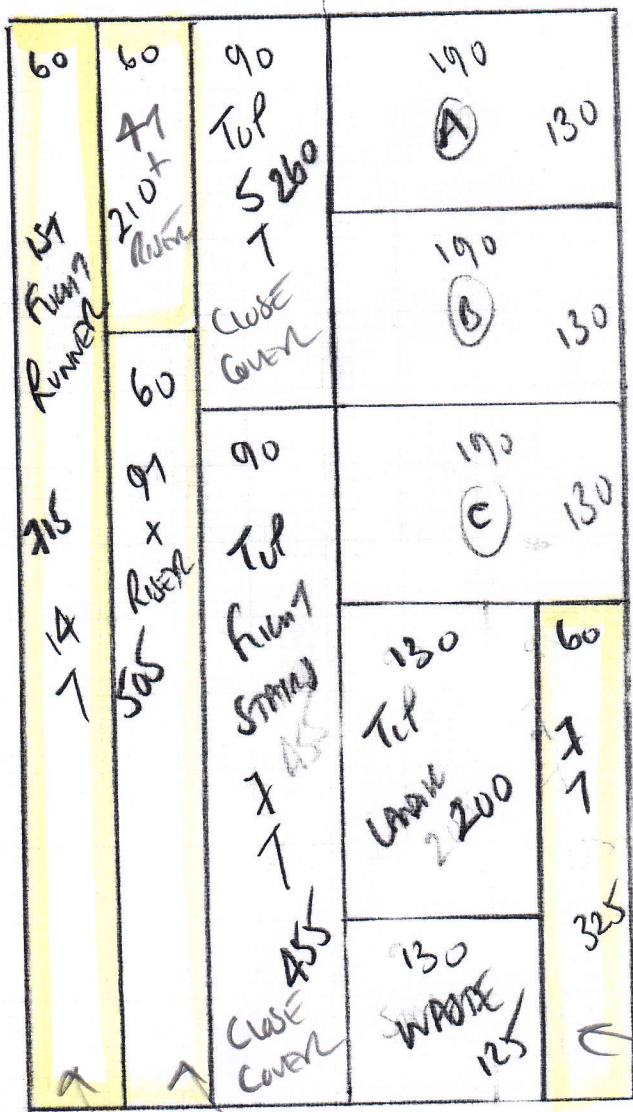 60
1ST
FLIGHT
RUNNER
715
14
T
60
4T
210 +
RISER
60
9T
X
RISER
505
90
TOP
5 260
T
CLOSE
COVER
90
TOP
FLIGHT
STAIRS
455
7
T
455
CLOSE
COVER
190
A
130
190
B
130
190
C
130
130
TOP
200
130
WASTE
125
60
7
T
325